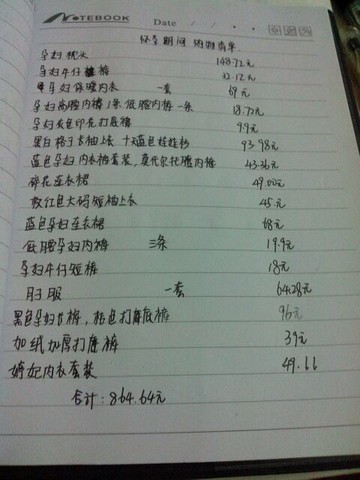 NOTEBOOK Date / / ·
怀孕期间 购物清单
孕妇枕头 148.72元
孕妇牛仔裤 32.12元
孕妇保暖内衣 一套 69元
孕妇高腰内裤1条 低腰内裤一条 18.70元
孕妇灰色印花打底裤 9.9元
黑白格子长袖上衣 十天蓝色娃娃衫 93.98元
蓝色孕妇内衣裤套装,莫代尔托腹内裤 43.36元
碎花连衣裙 49.00元
玫红色大码短袖上衣 45元
蓝色孕妇连衣裙 68元
低腰孕妇内裤 三条 19.9元
孕妇牛仔短裤 18元
月子服 一套 64.28元
黑色孕妇长裤,棕色打底裤 96元
加绒加厚打底裤 39元
婧妃内衣套装 49.66
合计:864.64元